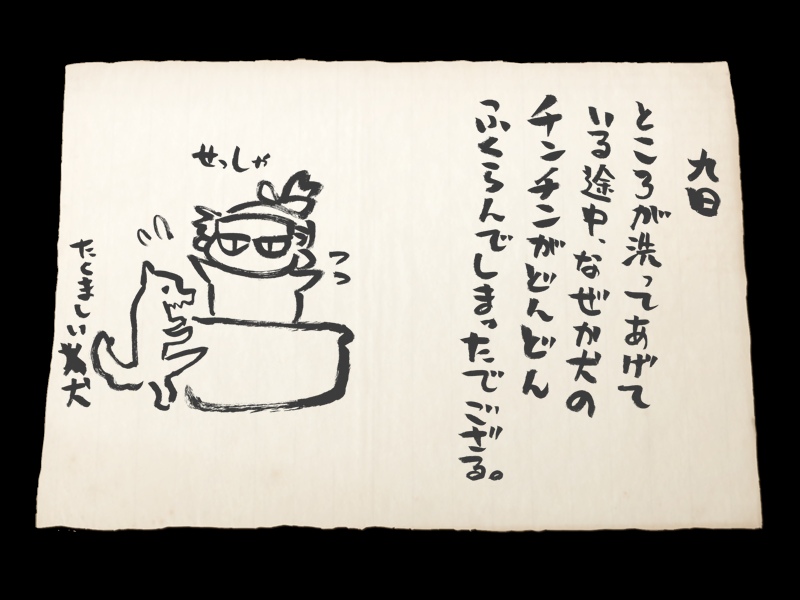 九日
ところが洗ってあげて
いる途中、なぜか犬の
チンチンがどんどん
ふくらんでしまったでござる。
せっしゃ
たくましい犬